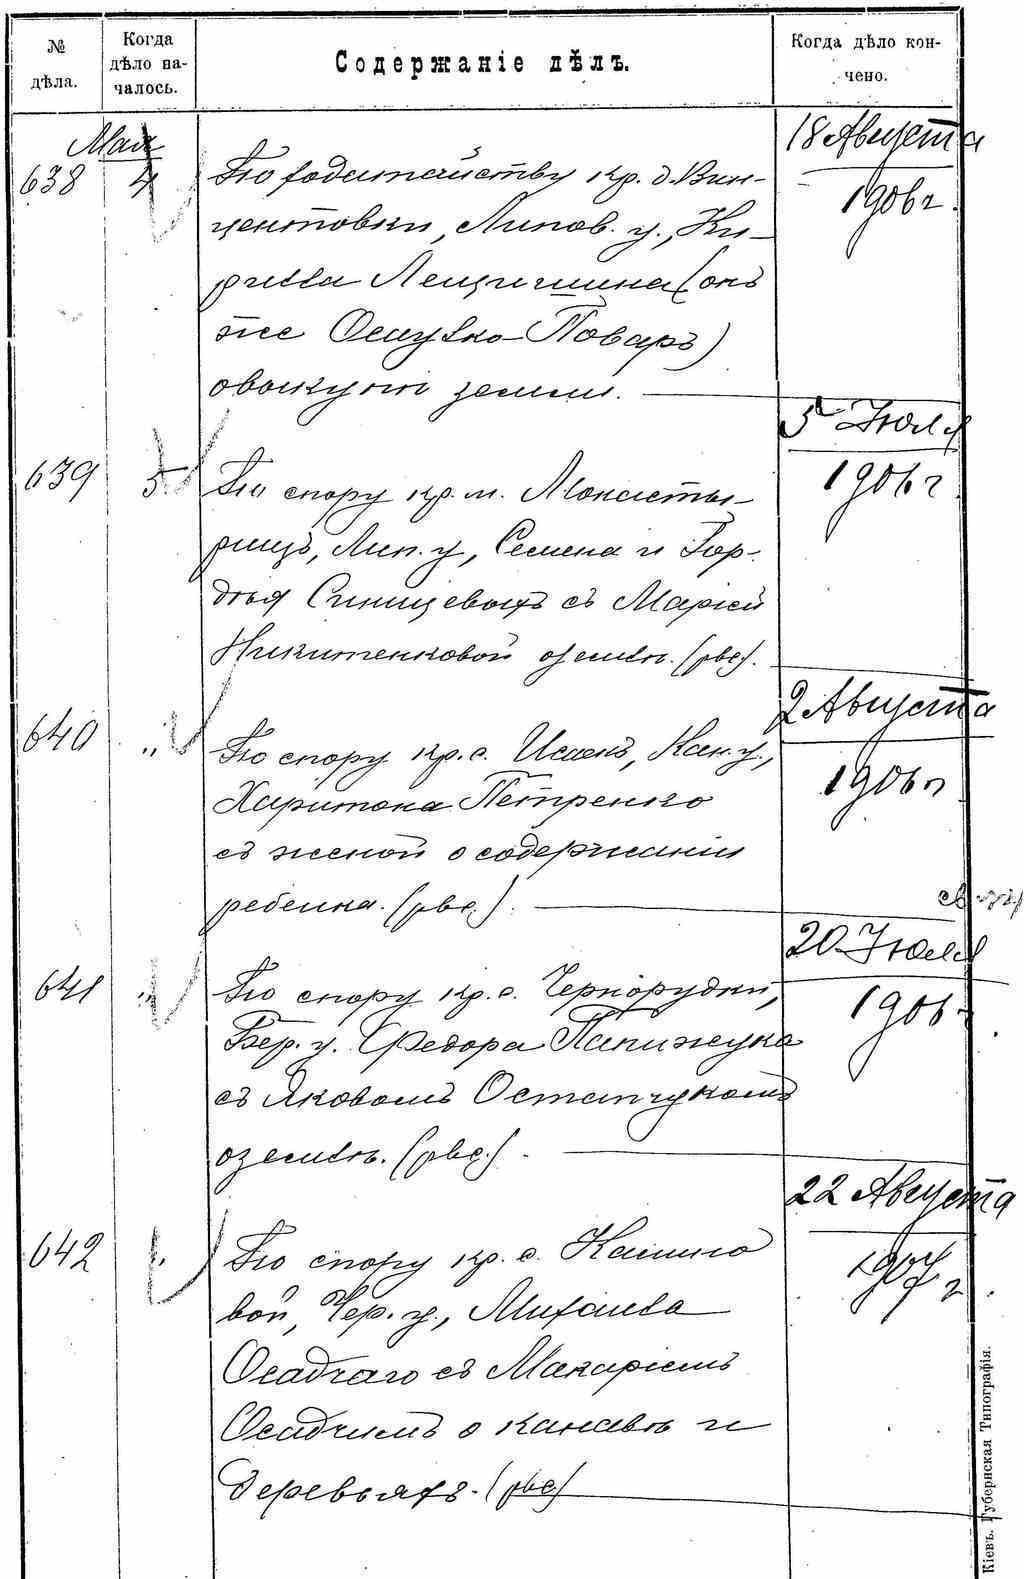 № дѣла.
Когда дѣло на-
чалось.
Содержаніе дѣлъ.
Когда дѣло кон-
чено.
Мая
638 4 По ходатайству кр. д. Вин-
центовки, Липов. у., Ки-
рилла Лещишина (онъ
же Повар)
о выкупѣ земли.
18 Августа
1906 г.
639 5 По спору кр. м. Монасты-
рищъ, Лип. у., Семена и Гор-
дѣя Синицевыхъ съ Маріей
Никитенковой о землѣ.
5 Іюля
1906 г
640 „ По спору кр. с. Кан. у.,
Харитона Петренко
съ женой о содержаніи
ребенка.
2 Августа
1906 г
641 „ По спору кр. с. Чернорудки,
Бер. у. Федора Папижука
съ Яковомъ Остапчукомъ
о землѣ.
20 Іюля
1906
642 „ По спору кр. с.
вой, Чер. у., Михаила
Осадчаго съ Макаріемъ
Осадчимъ о канавѣ и
деревьяхъ.
22 Августа
1907 г
Кіевъ. Губернская Типографія.